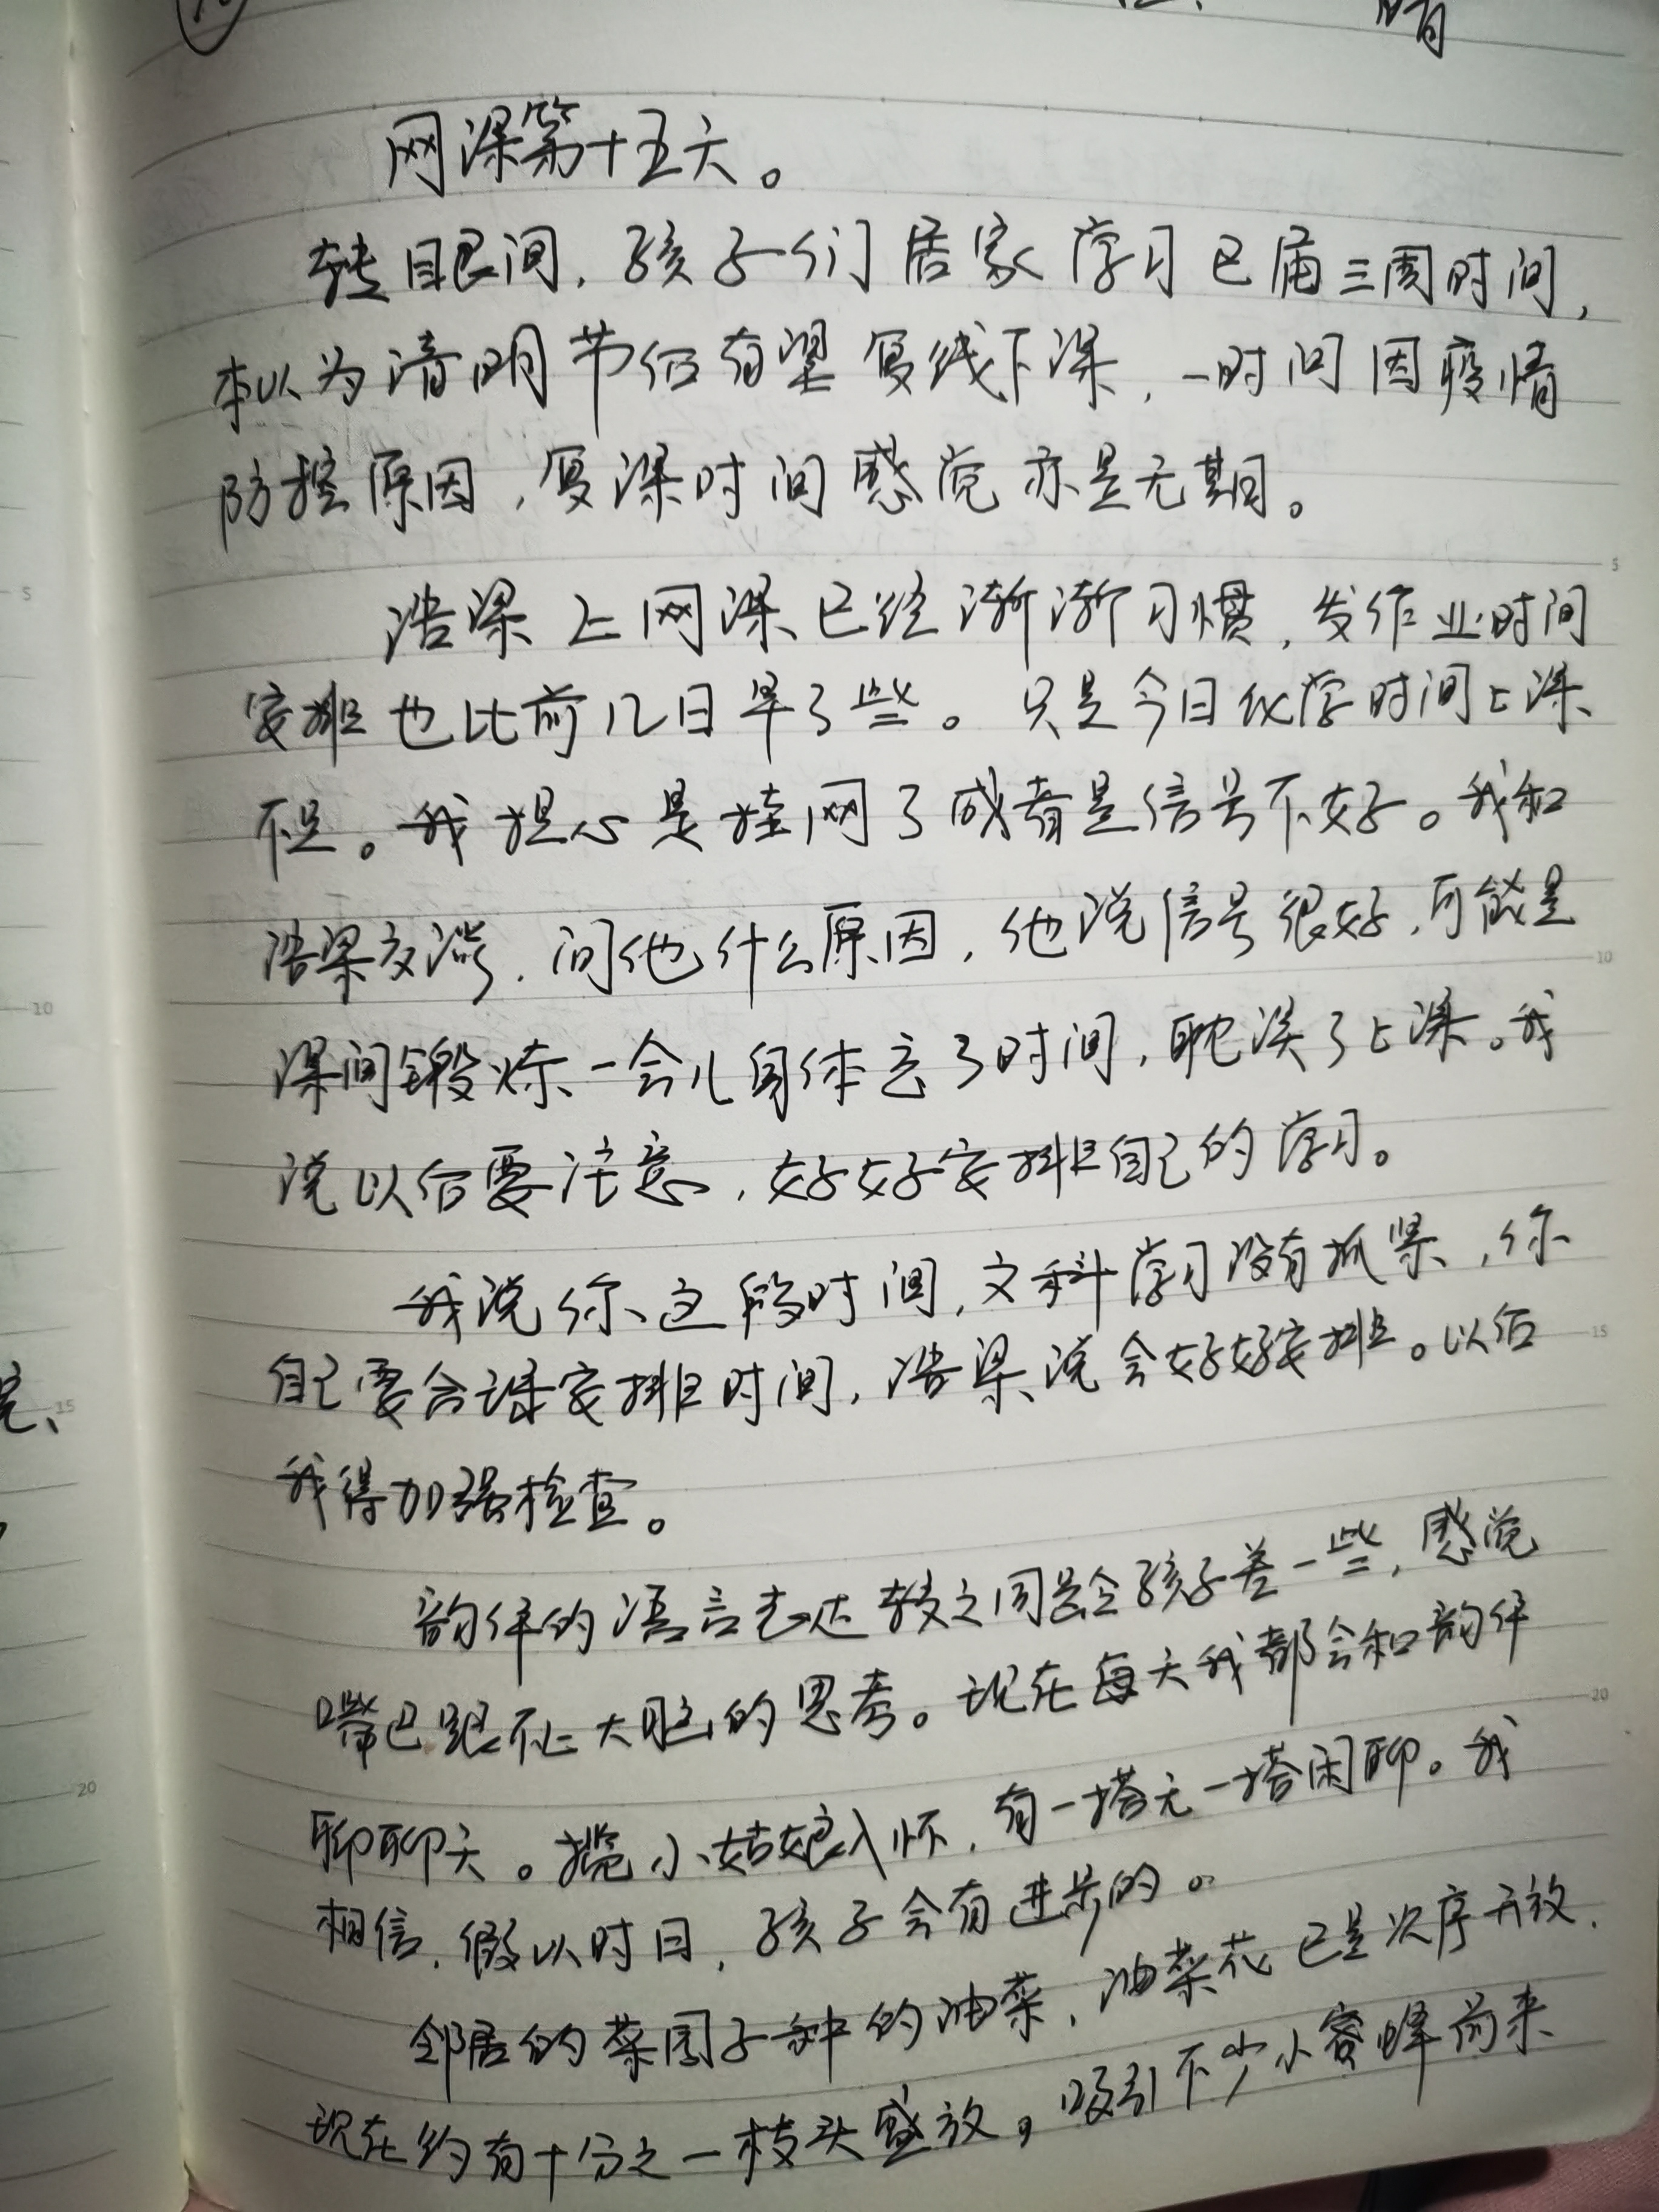 晴
网课第十五天。
转眼间，孩子们居家学习已届三周时间，
本以为清明节后有望复线下课，一时间因疫情
防控原因，复课时间感觉亦是无期。
浩梁上网课已经渐渐习惯，发作业时间
安排也比前几日早了些。只是今日化学时间上课
不足。我担心是挂网了或者是信号不好。我和
浩梁交谈，问他什么原因，他说信号很好，可能是
课间锻炼一会儿身体忘了时间，耽误了上课。我
说以后要注意，好好安排自己的学习。
我说你这段时间，文科学习没有抓紧，你
自己要合理安排时间，浩梁说会好好安排。以后
我得加强检查。
韵伊的语言表达较之同龄孩子差一些，感觉
嘴巴跟不上大脑的思考。现在每天我都会和韵伊
聊聊天。揽小姑娘入怀，有一搭无一搭闲聊。我
相信，假以时日，孩子会有进步的。
邻居的菜园子种的油菜，油菜花已是次序开放，
现在约有十分之一枝头盛放，吸引不少小蜜蜂前来
5
10
15
20
5
10
15
20